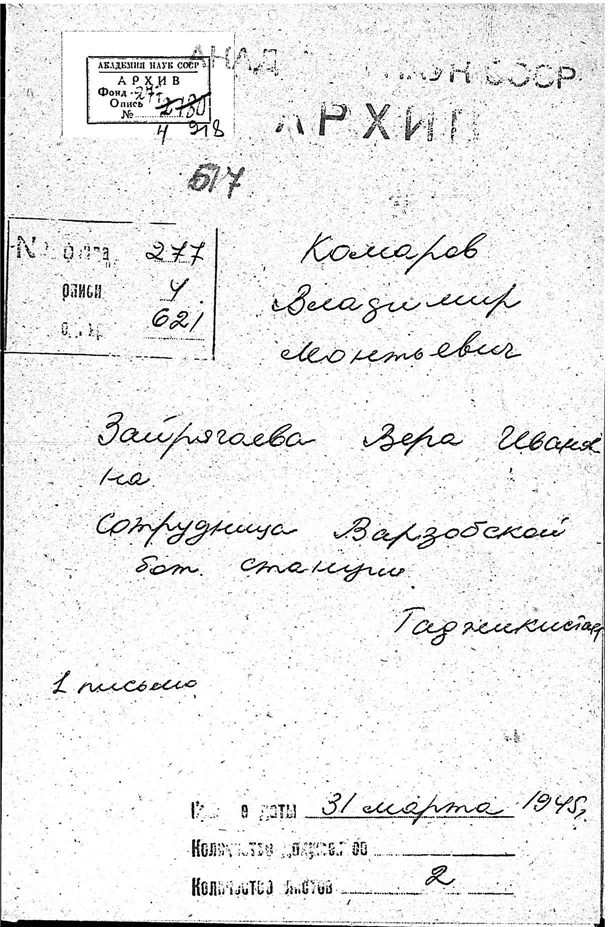 АКАДЕМИЯ НАУК СССР
АРХИВ
Фонд 277
Опись
№ 2780
4 918
АКАД НАУК СССР
АРХИВ
617
№ фонда 277
описи 4
621
Комаров
Владимир
Леонтьевич
Зайрягаева Вера Иванов
на
Сотрудница Варзобской
бот. станции
Таджикистан
1 письмо
даты 31 марта 1945г.
Количество документов
Количество листов 2